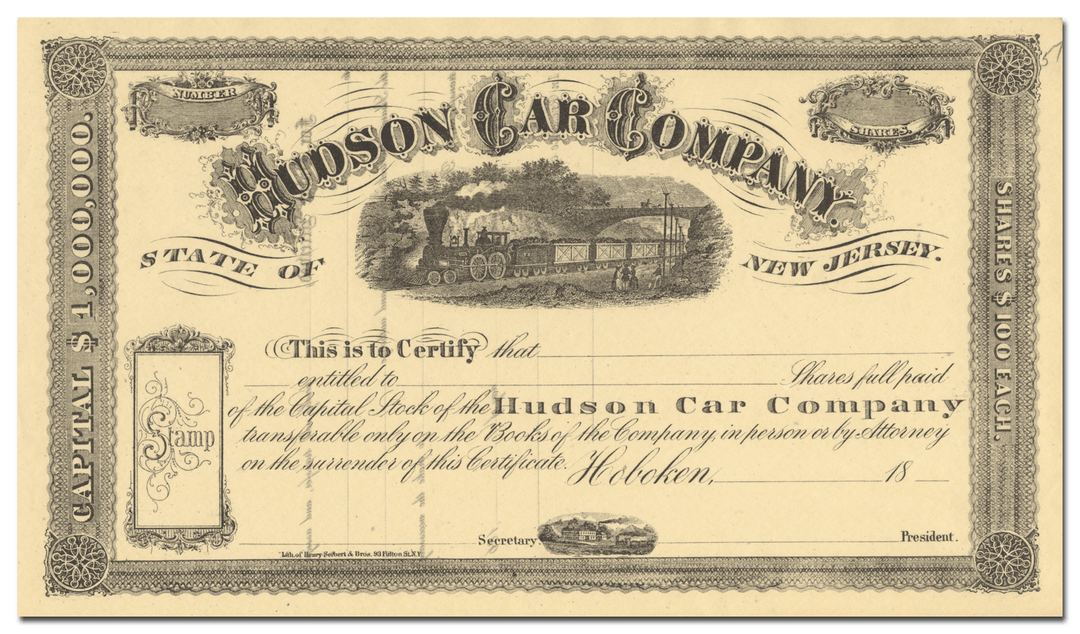 NUMBER
HUDSON CAR COMPANY.
SHARES.
STATE OF NEW JERSEY.
CAPITAL $1,000,000.
SHARES $100 EACH.
Stamp
This is to Certify that
entitled to Shares full paid
of the Capital Stock of the Hudson Car Company
transferable only on the Books of the Company, in person or by Attorney
on the surrender of this Certificate. Hoboken, 18
Secretary. President.
Lith. of Henry Seibert & Bros. 93 Fulton St. N.Y.